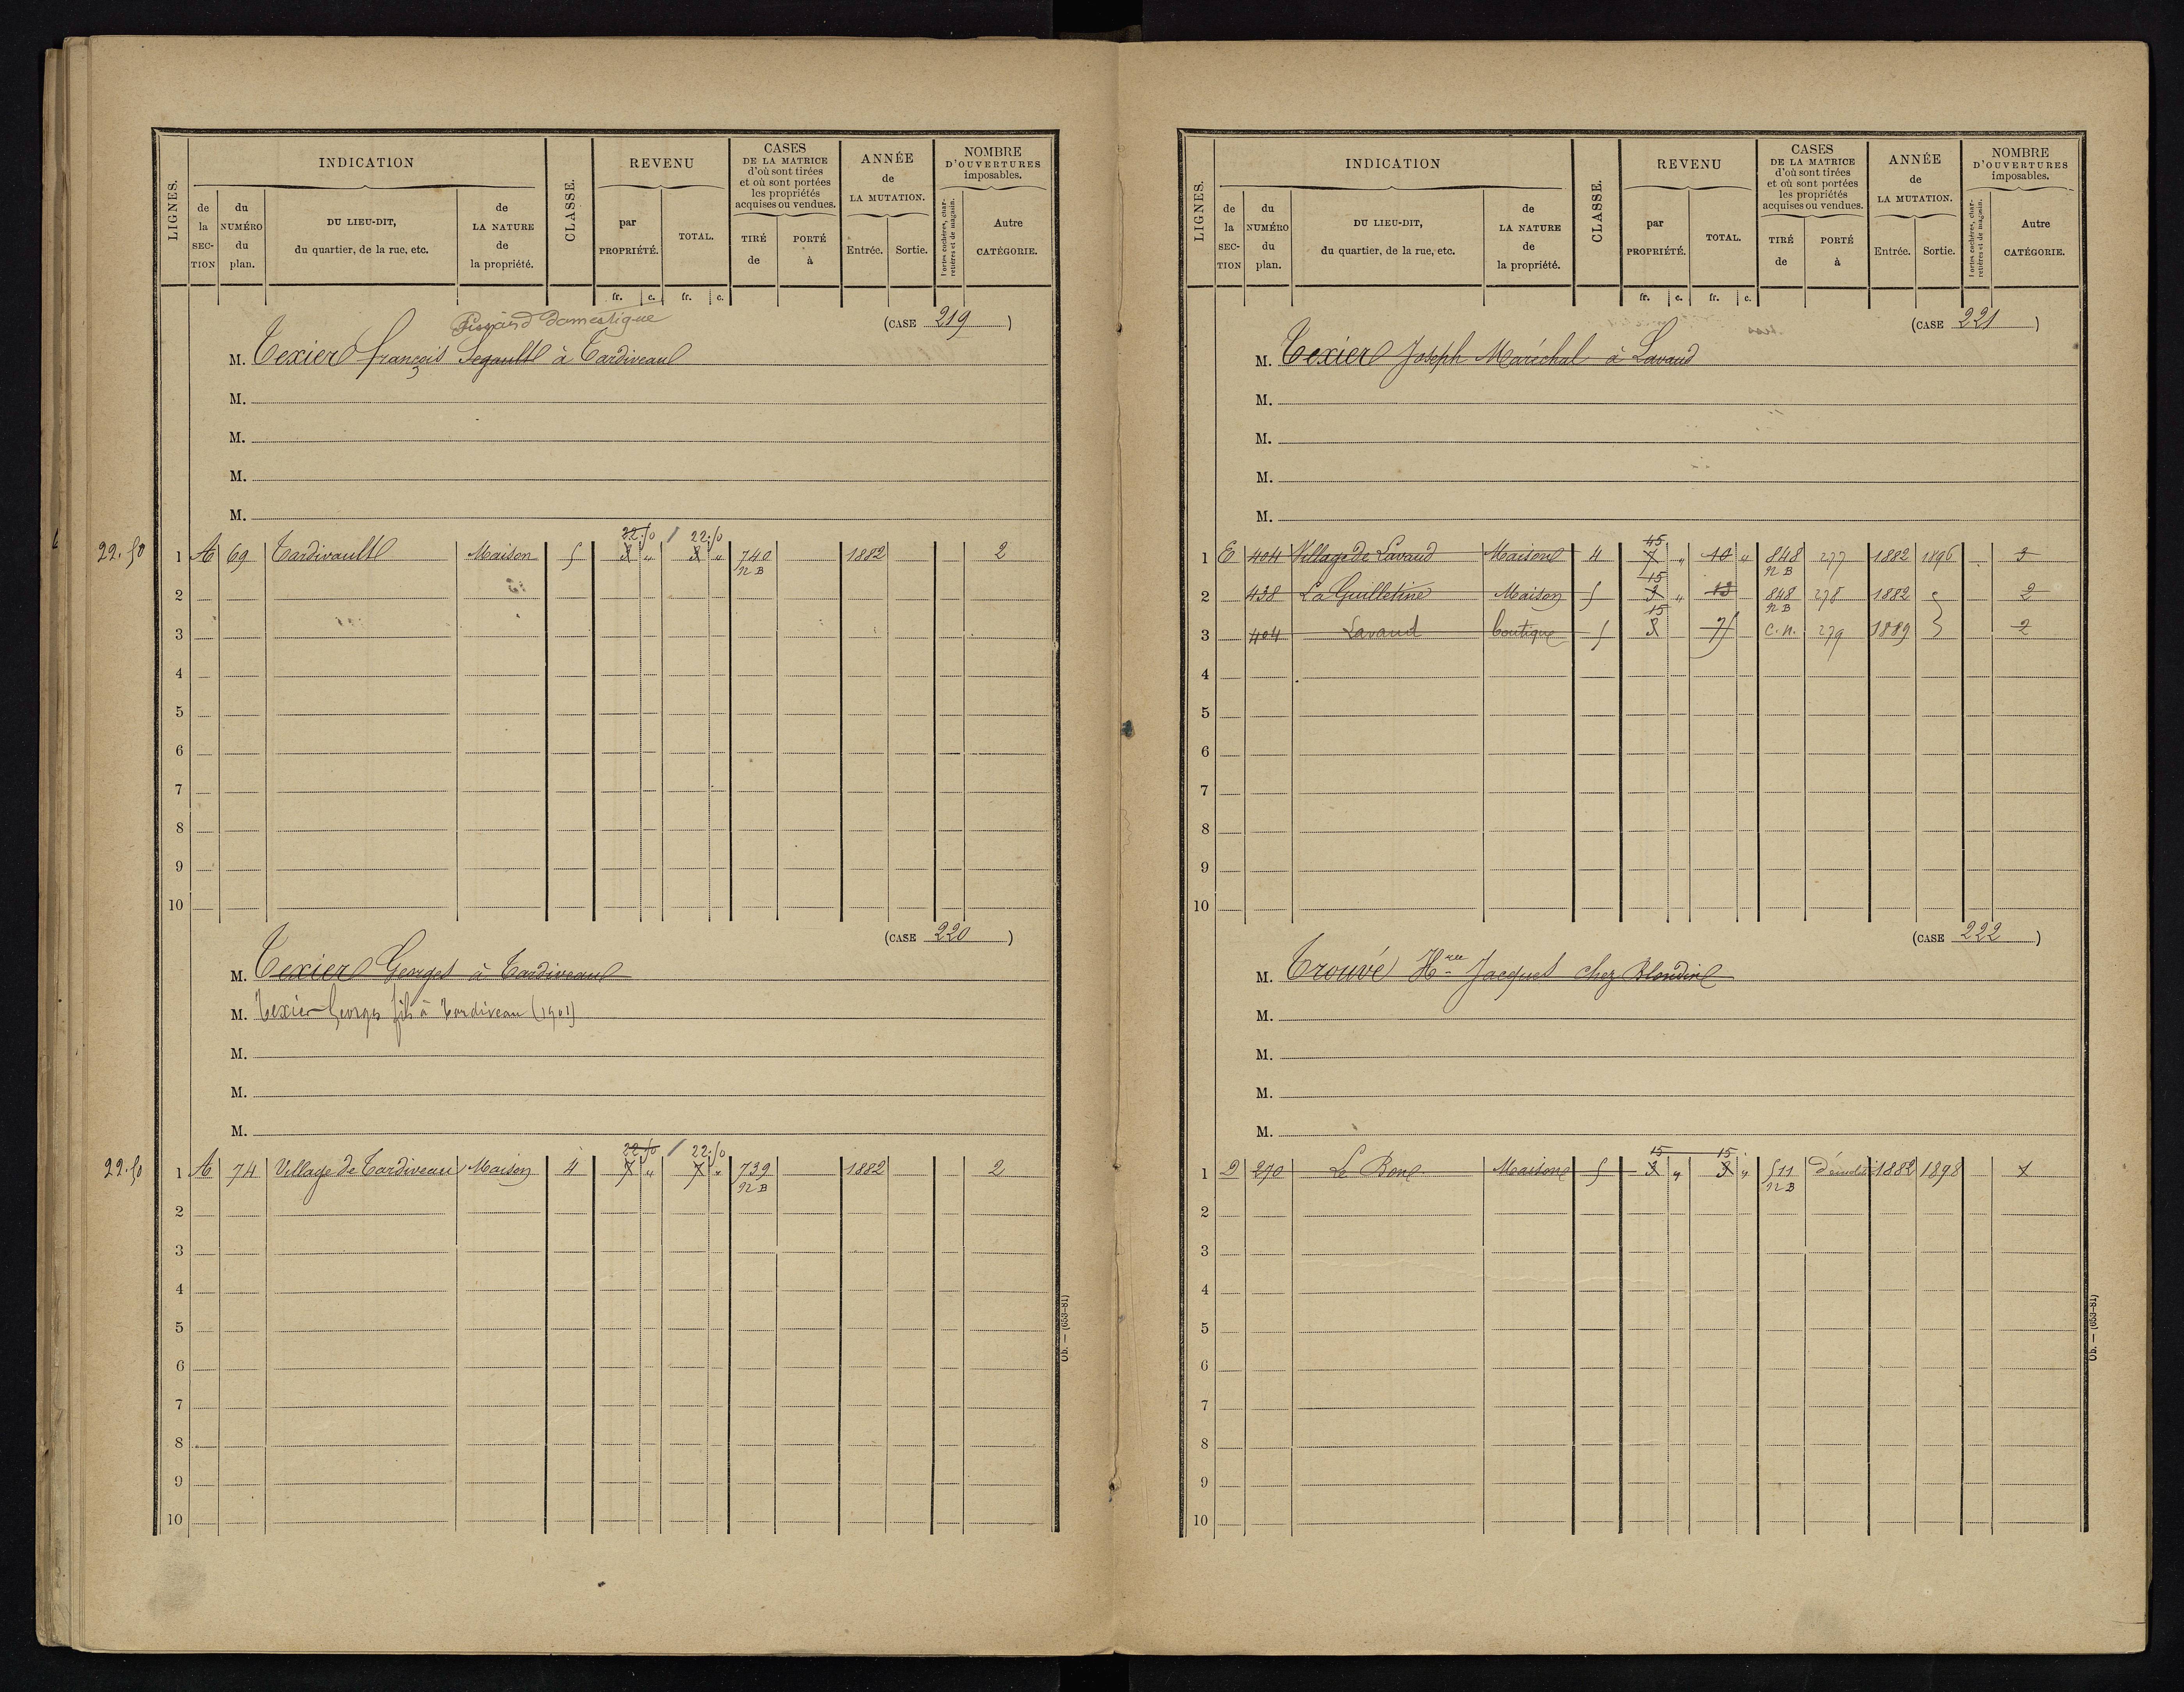 LIGNES.
INDICATION
de la SECTION
du NUMÉRO du plan.
DU LIEU-DIT, du quartier, de la rue, etc.
de LA NATURE de la propriété.
CLASSE.
REVENU
par PROPRIÉTÉ.
TOTAL.
fr. c. fr. c.
CASES DE LA MATRICE d'où sont tirées et où sont portées les propriétés acquises ou vendues.
TIRÉ de
PORTÉ à
ANNÉE de LA MUTATION.
Entrée.
Sortie.
NOMBRE D'OUVERTURES imposables.
Portes cochères, charretières et de magasin.
Autre CATÉGORIE.
domestique
(CASE 219)
M. Texier françois Segault à Tardiveau
M.
M.
M.
M.
22.50 / 22.50
22.50 1 A 69 Tardivault Maison 5 3 " 3 " 740 1882 2
NB
2
3
4
5
6
7
8
9
10
(CASE 220)
M. Texier Georges à Tardiveau
M. Texier Georges fils à Tardiveau (1901)
M.
M.
M.
22.50 / 22.50
22.50 1 A 74 Village de Tardiveau Maison 4 7 " 7 " 739 1882 2
NB
2
3
4
5
6
7
8
9
10
Ob. — (653-81)
LIGNES.
INDICATION
de la SECTION
du NUMÉRO du plan.
DU LIEU-DIT, du quartier, de la rue, etc.
de LA NATURE de la propriété.
CLASSE.
REVENU
par PROPRIÉTÉ.
TOTAL.
fr. c. fr. c.
CASES DE LA MATRICE d'où sont tirées et où sont portées les propriétés acquises ou vendues.
TIRÉ de
PORTÉ à
ANNÉE de LA MUTATION.
Entrée.
Sortie.
NOMBRE D'OUVERTURES imposables.
Portes cochères, charretières et de magasin.
Autre CATÉGORIE.
(CASE 221)
M. Texier Joseph Maréchal à Lavaud
M.
M.
M.
M.
45
1 E 404 Village de Lavaud Maison 4 7 " 10 " 848 277 1882 1896 3
NB
15
2 438 La Guilletine Maison 5 3 " 13 848 278 1882 2
NB
15
3 404 Lavaud boutique 5 3 75 C.n. 279 1889 2
4
5
6
7
8
9
10
(CASE 222)
M. Trouvé Jacques chez Blondin
M.
M.
M.
M.
15 15
1 D 270 Le Bone Maison 5 3 " 3 " 511 démolition 1882 1898 1
NB
2
3
4
5
6
7
8
9
10
Ob. — (653-81)